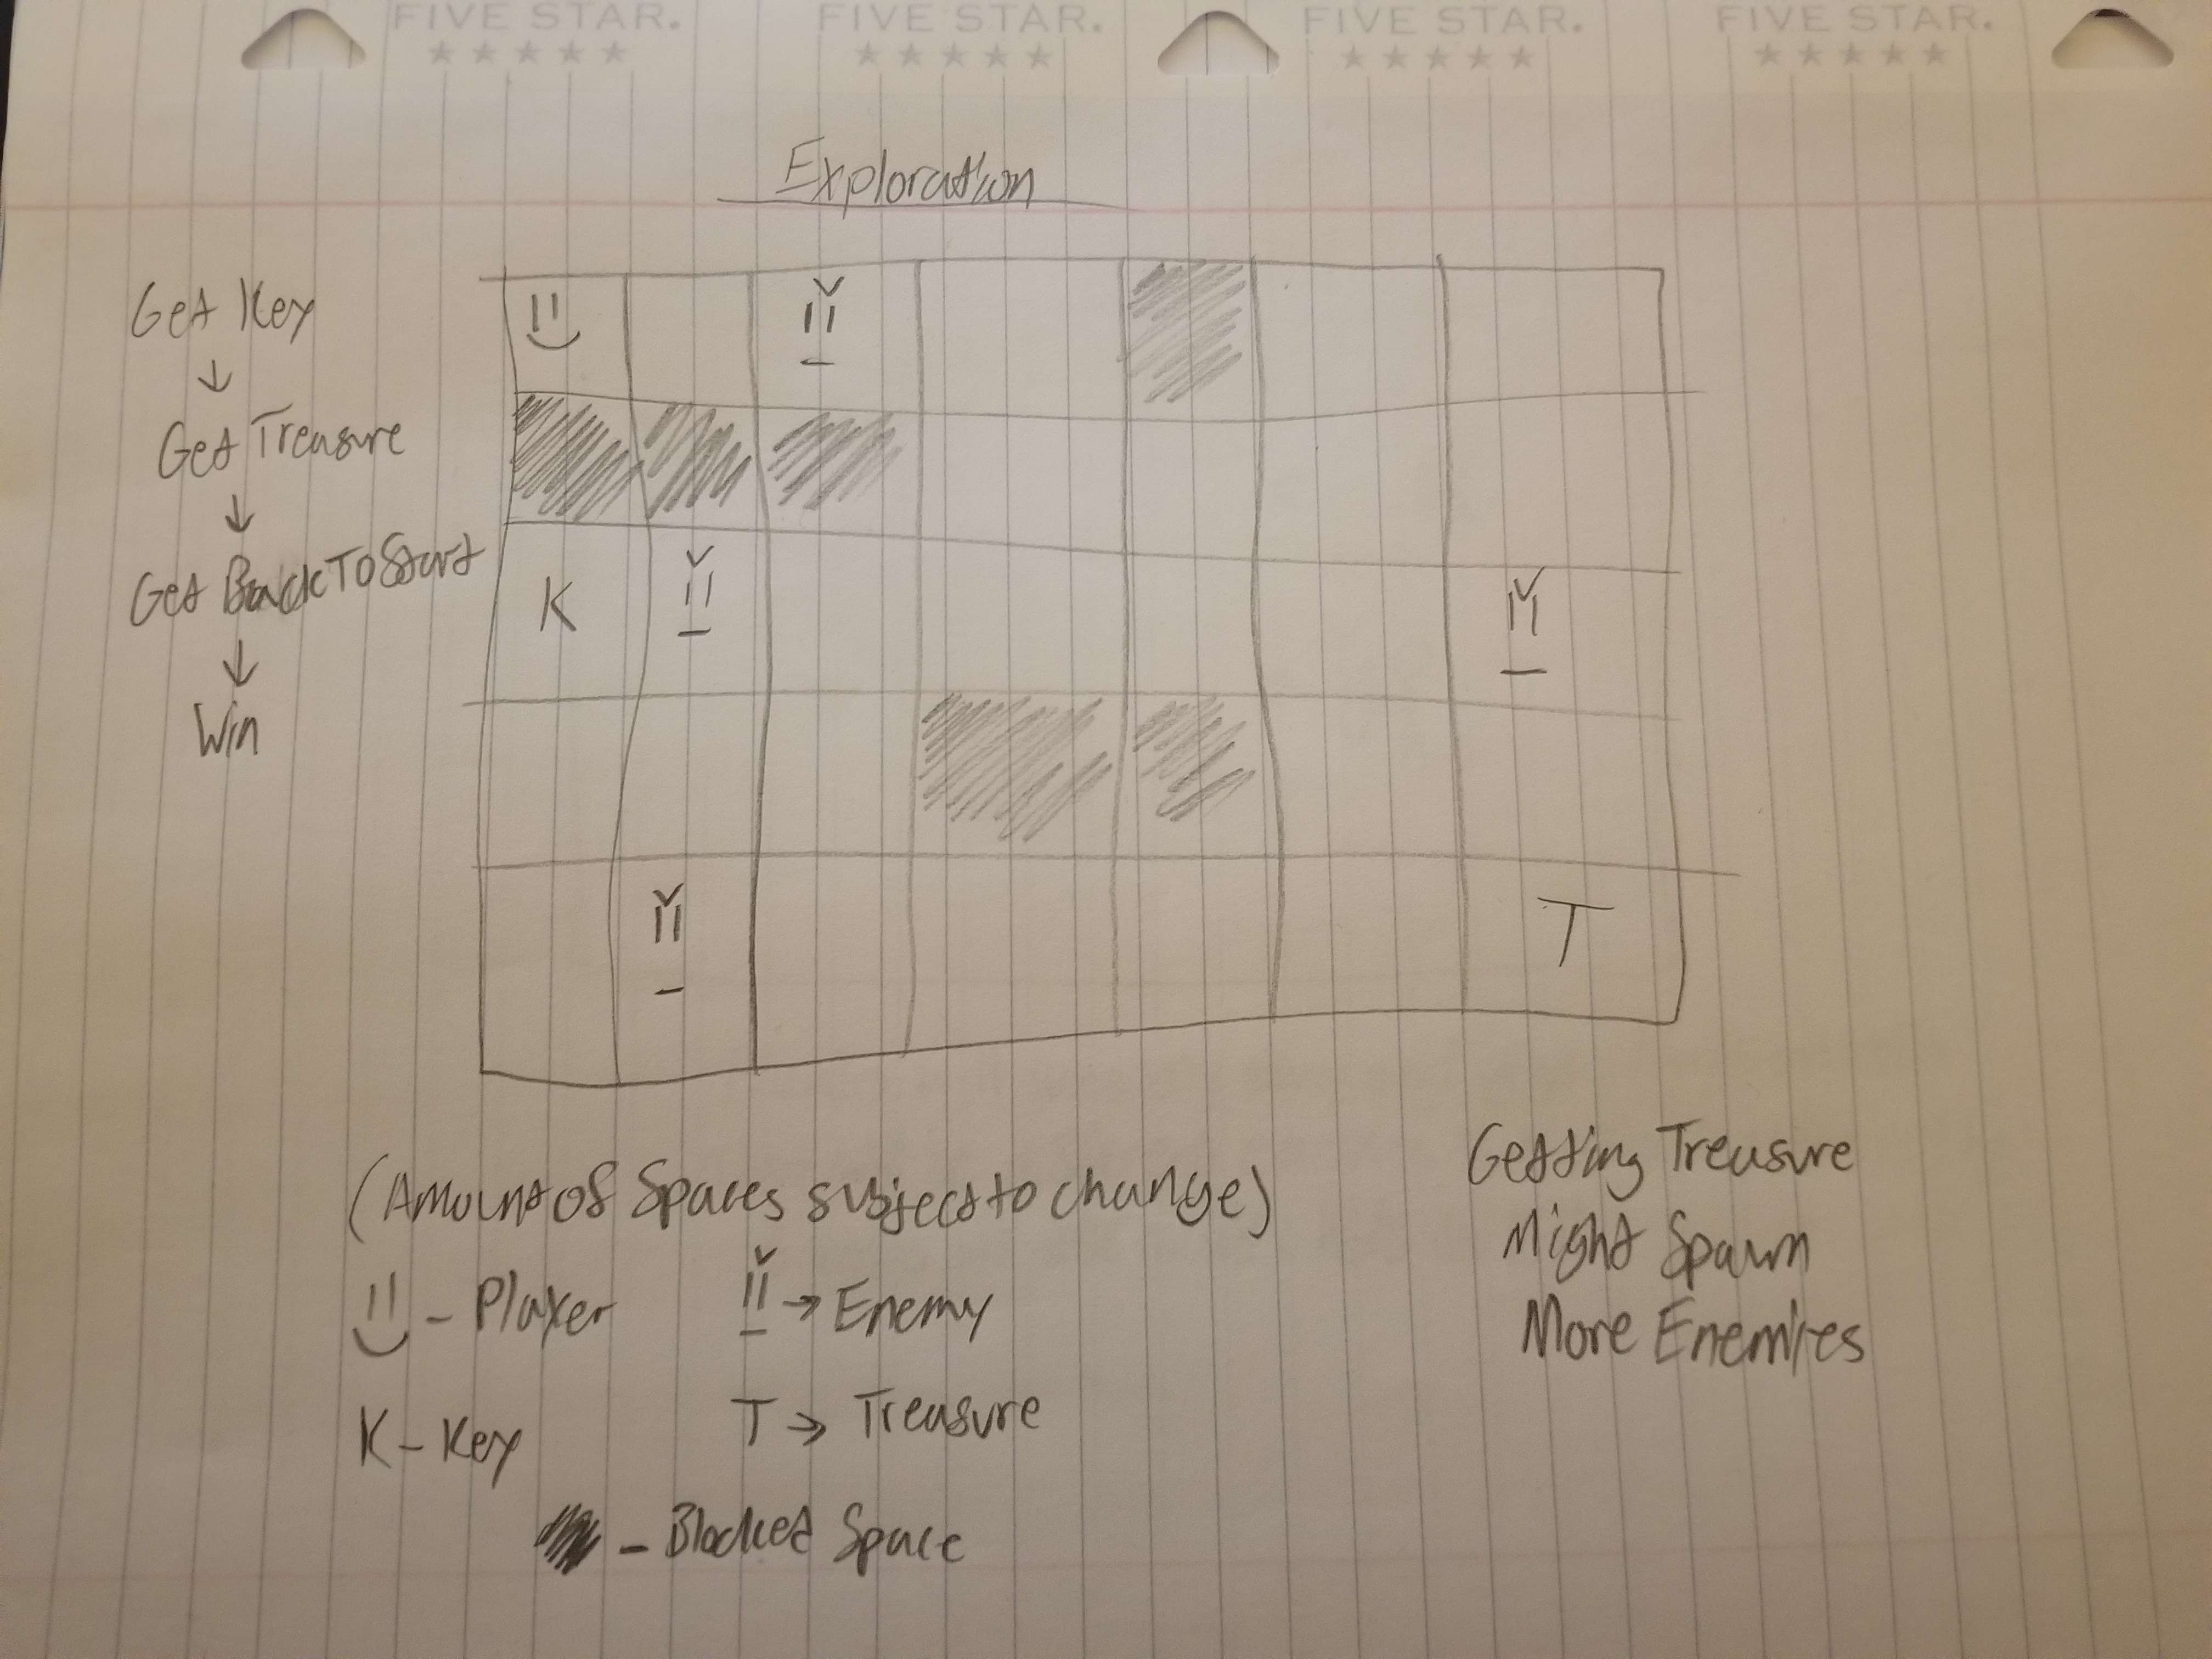 FIVE STAR. FIVE STAR. FIVE STAR. FIVE STAR.
Exploration
Get Key
↓
Get Treasure
↓
Get Back To Start
↓
Win
K
T
(Amount of Spaces subject to change)
- Player
→ Enemy
K - Key
T → Treasure
- Blocked Space
Getting Treasure
Might Spawn
More Enemies